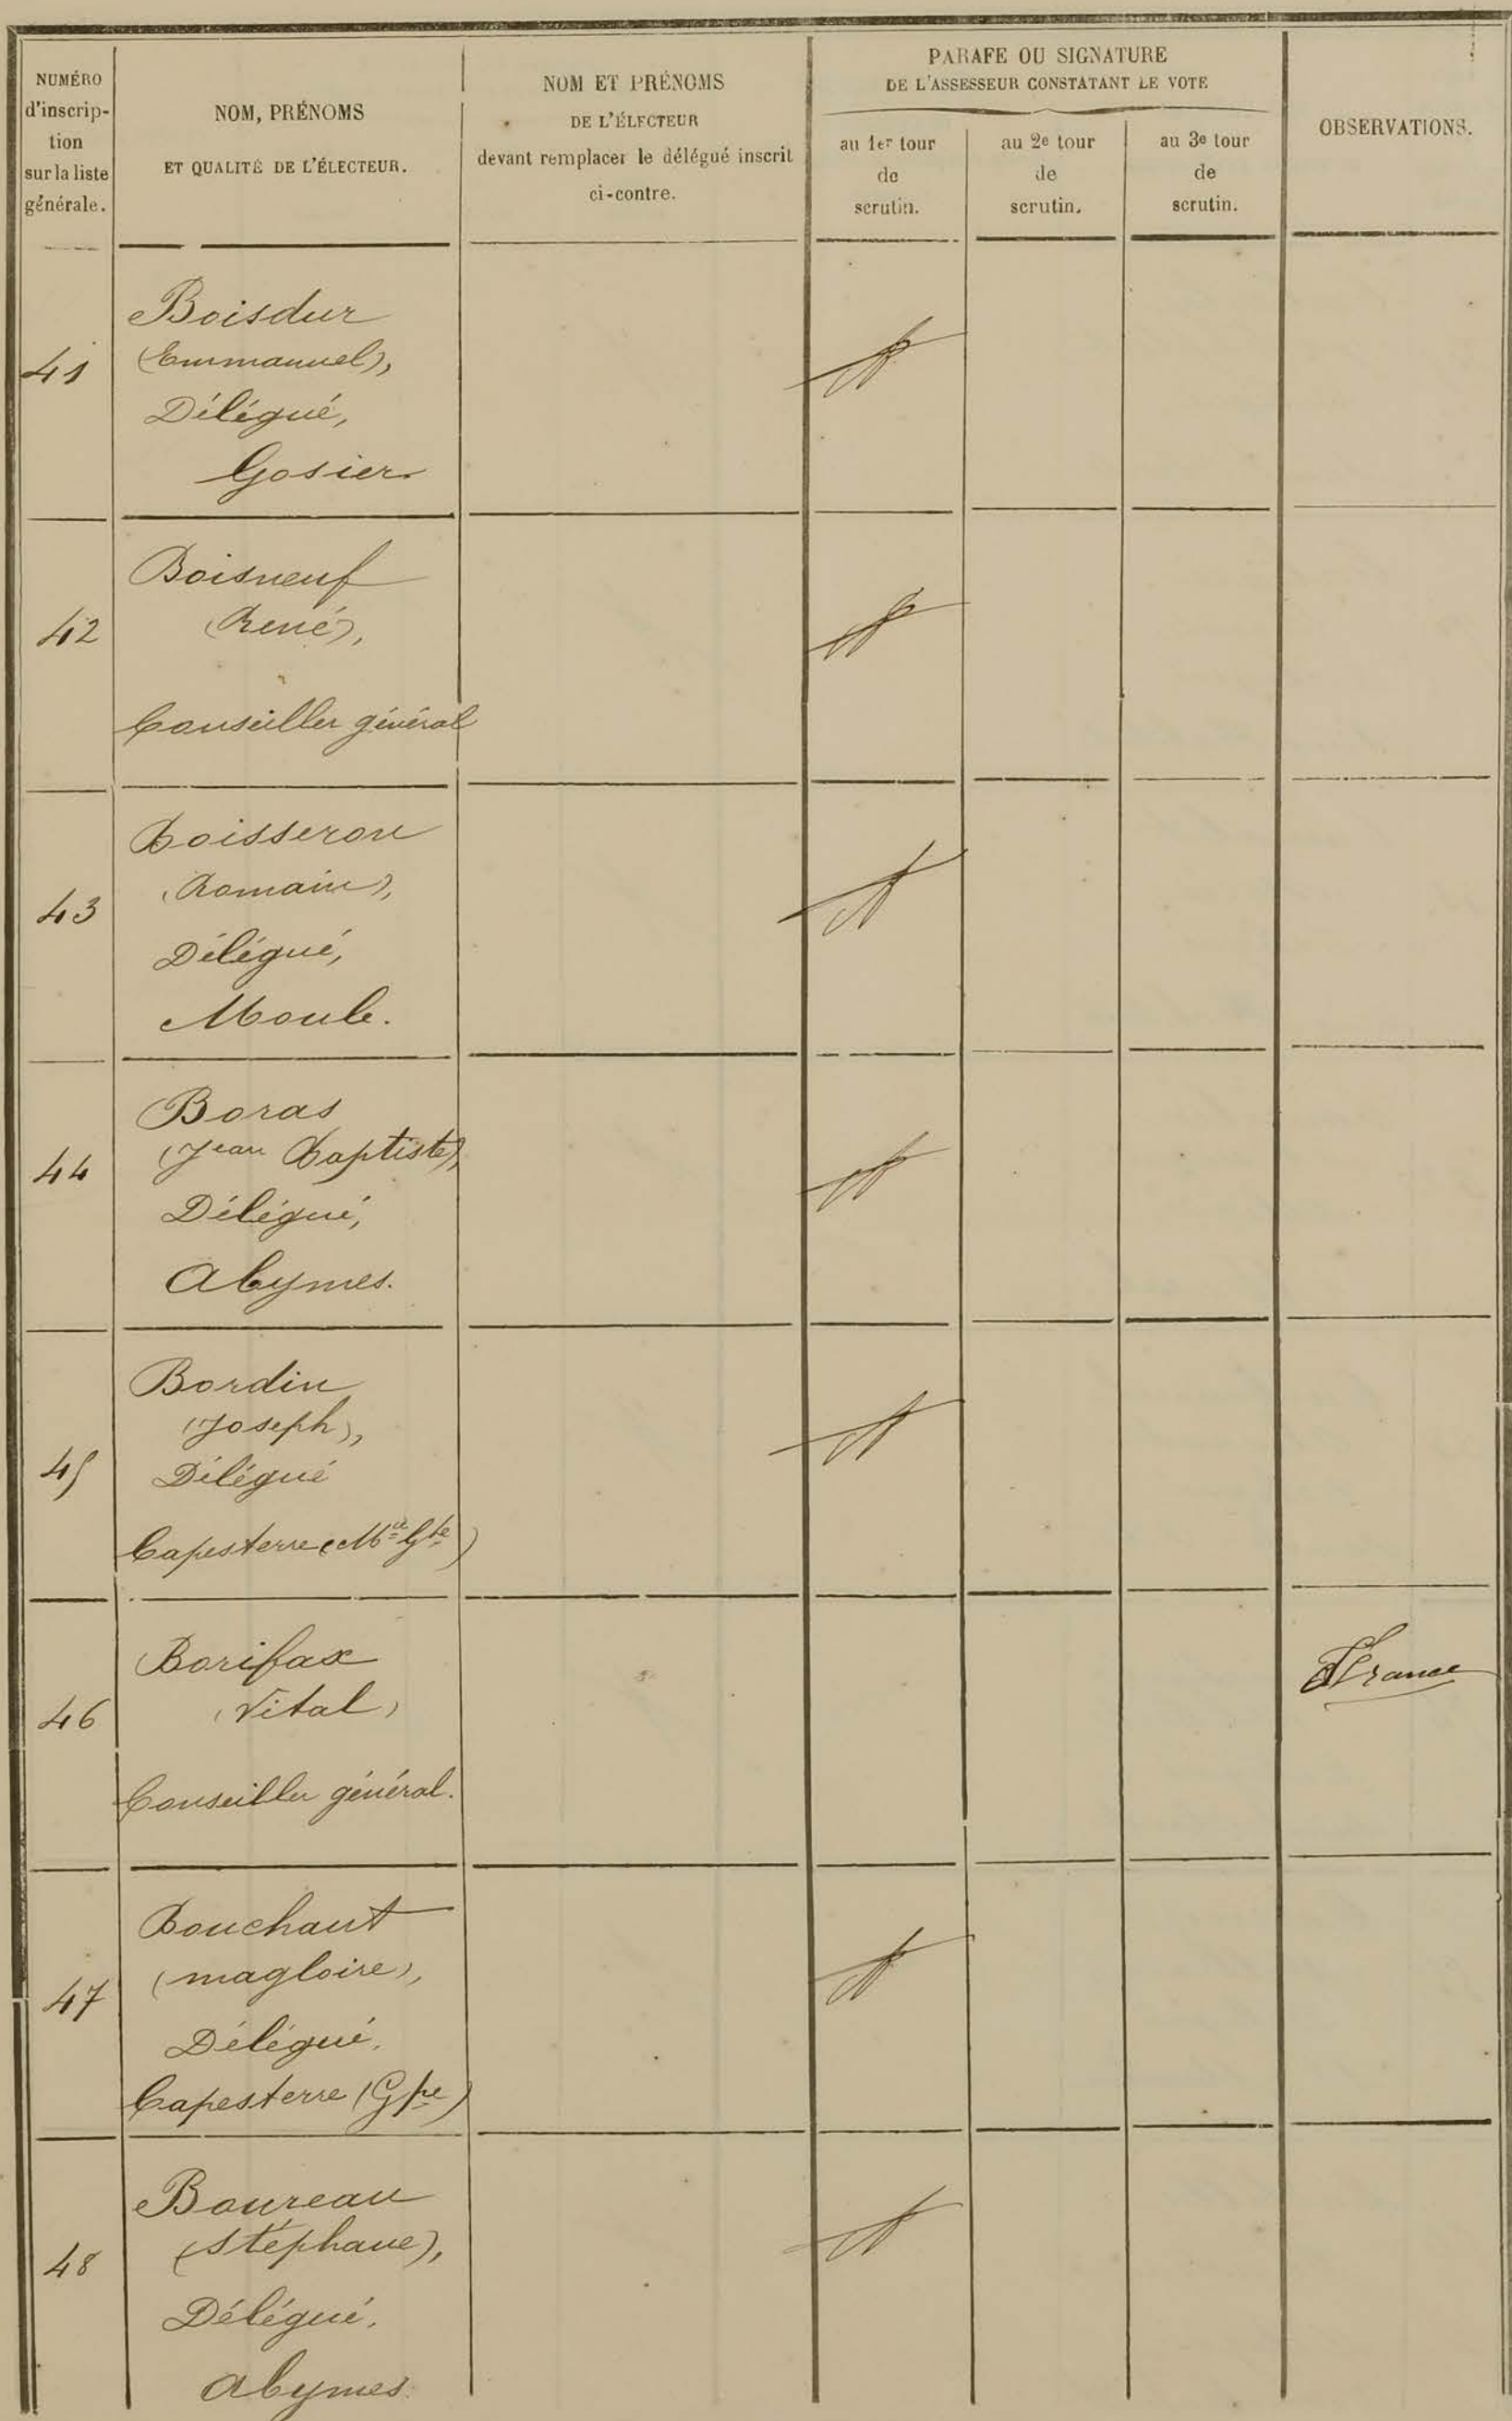 NUMÉRO
d'inscrip-
tion
sur la liste
générale.
NOM, PRÉNOMS
ET QUALITÉ DE L'ÉLECTEUR.
NOM ET PRÉNOMS
DE L'ÉLECTEUR
devant remplacer le délégué inscrit
ci-contre.
PARAFE OU SIGNATURE
DE L'ASSESSEUR CONSTATANT LE VOTE
au 1er tour
de
scrutin.
au 2e tour
de
scrutin.
au 3e tour
de
scrutin.
OBSERVATIONS.
41
Boisdur
(Emmanuel),
Délégué,
Gosier
42
Boisneuf
(René),
Conseiller général
43
Boisseron
(Romain),
Délégué,
Moule.
44
Boras
(Jean Baptiste),
Délégué,
Abymes.
45
Bordin
(Joseph),
Délégué
Capesterre (Mie Gte)
46
Borifax
(Vital)
Conseiller général.
France
47
Bouchaut
(magloire),
Délégué.
Capesterre (Gpe)
48
Boureau
(Stéphane),
Délégué.
Abymes.